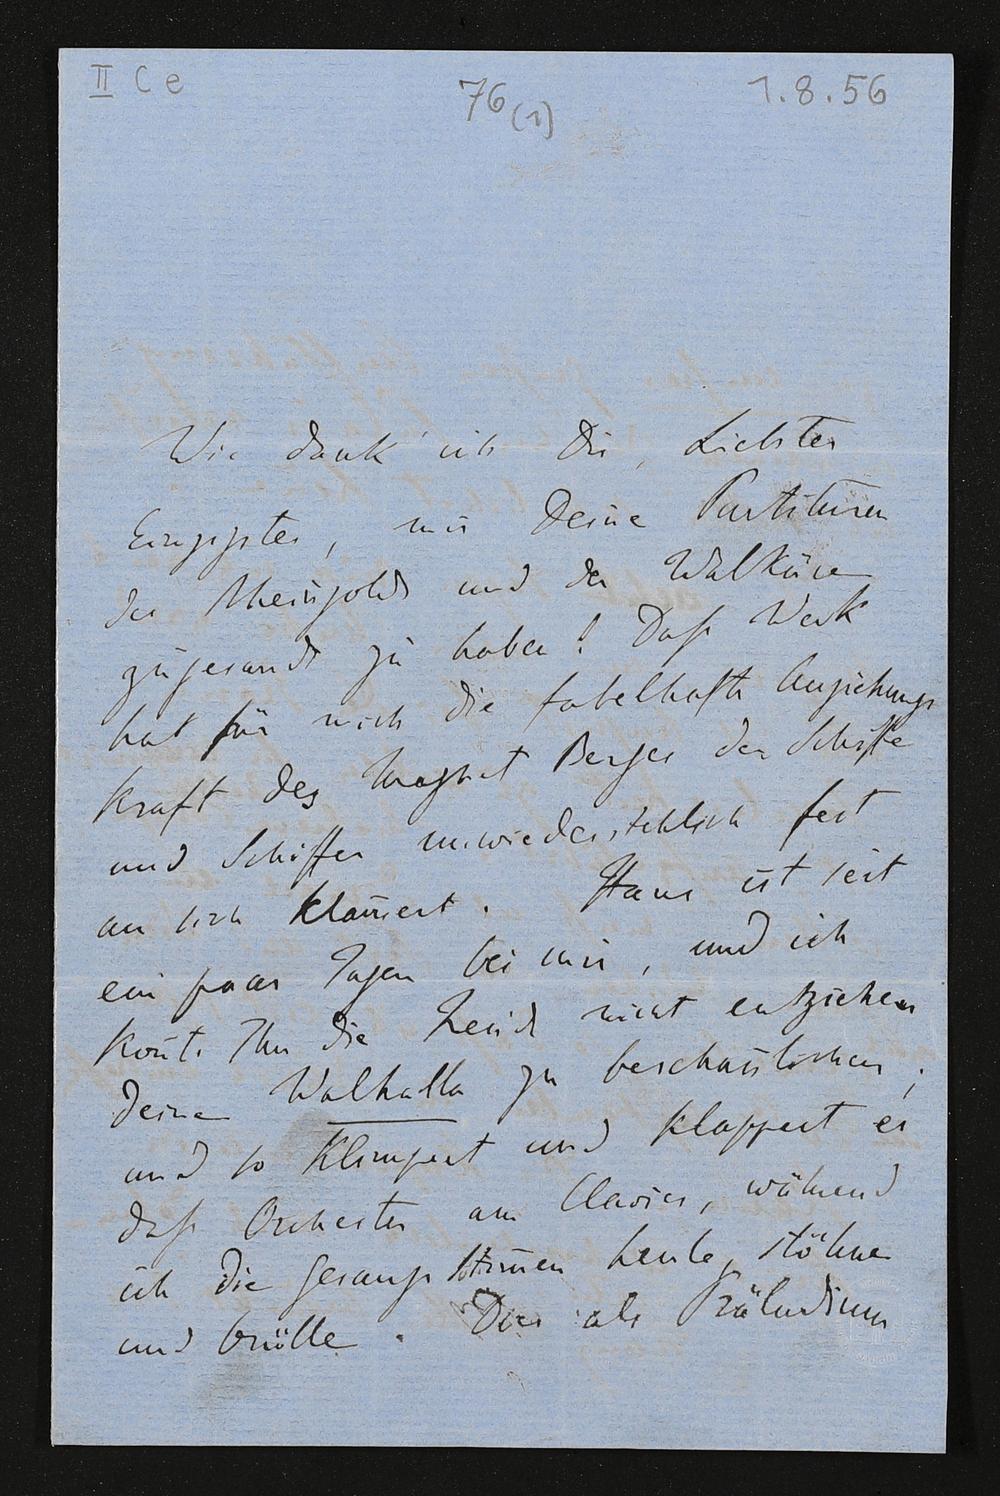 II C e
76 (1)
1.8.56
Wie dank' ich Dir, Liebster
Einzigster, mir Deine Partituren
des Rheingolds und der Walküre
zugesandt zu haben! Daß Werk
hat für mich die fabelhafte Anziehungs
kraft des Magnet Berges der Schiffe
und Schiffer unwiederstehlich fest
an sich klamert. Hans ist seit
ein paar Tagen bei mir, und ich
konte Ihm die Freude nicht entziehen
Deine Walhalla zu beschaulichen;
und so klimpert und klappert er
daß Orchester am Clavier, während
ich die Gesang Stimen heule, stöhne
und brülle. Dies als Präludium